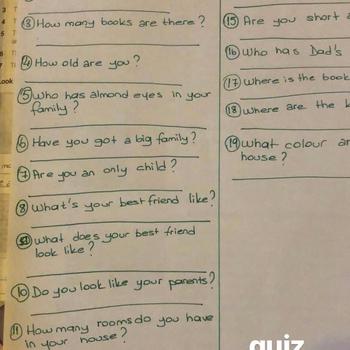 ③ How many books are there?
④ How old are you?
⑤ Who has almond eyes in your
family?
⑥ Have you got a big family?
⑦ Are you an only child?
⑧ What's your best friend like?
⑨ What does your best friend
look like?
⑩ Do you look like your parents?
⑪ How many rooms do you have
in your house?
⑮ Are you short
⑯ Who has Dad's
⑰ Where is the book
⑱ Where are the
⑲ What colour
house?
quiz